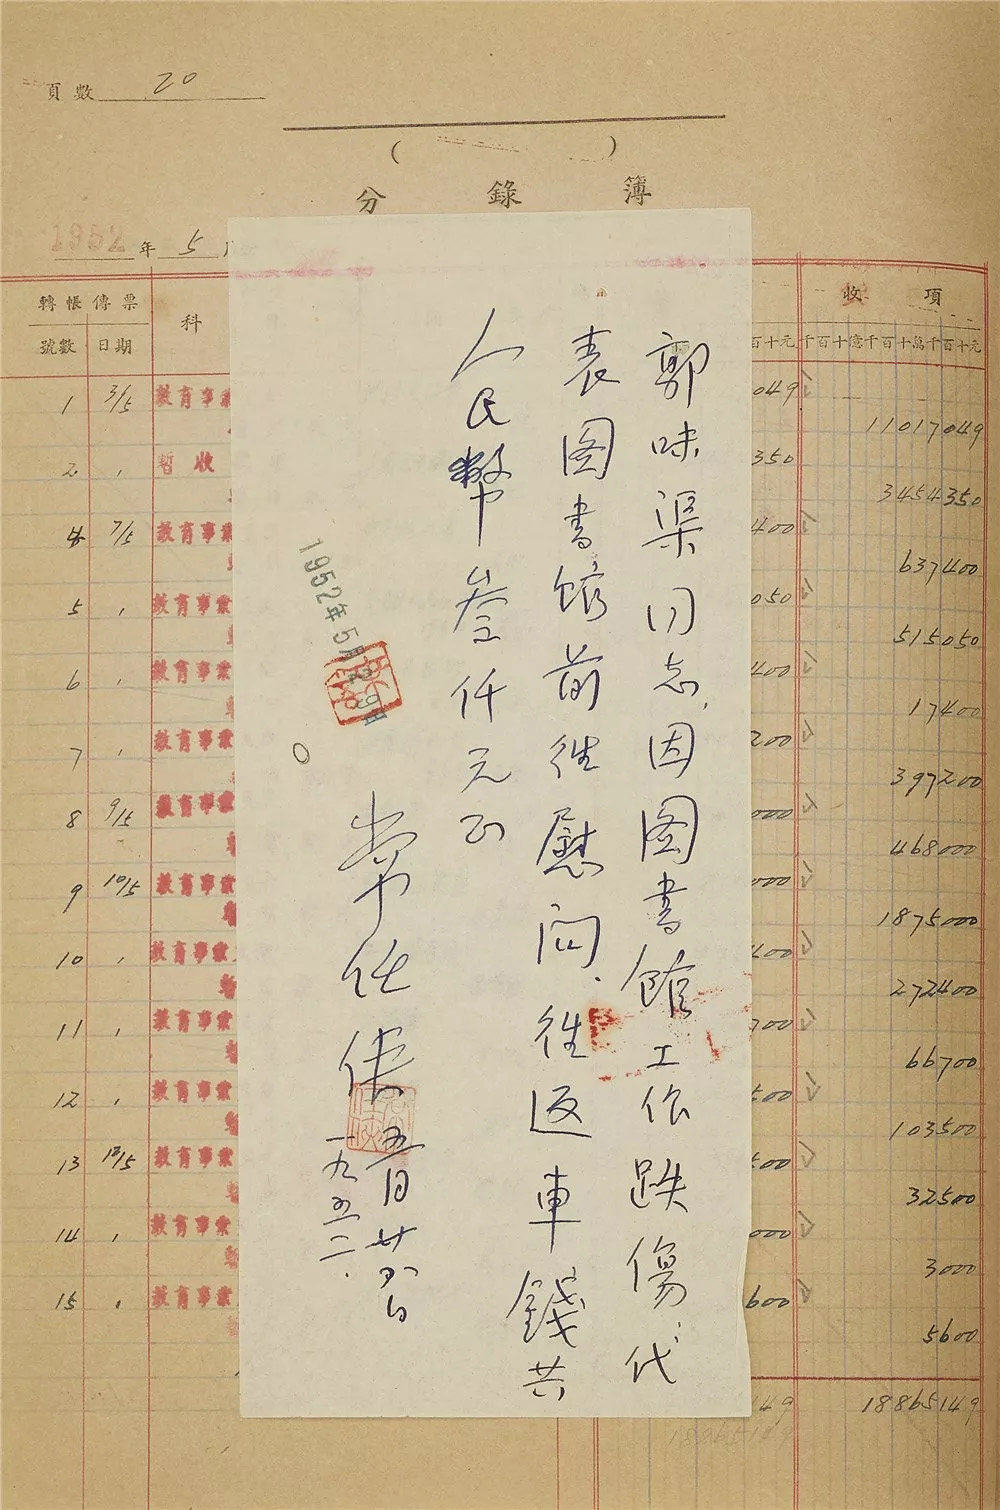 頁數 20
( )
分錄簿
1952年5月
轉帳傳票
號數 日期
科
收項
百十元
千百十億千百十萬千百十元
1 3/5 教育事業 049 11017049
2 , 暫收 350 3454350
4 7/5 教育事業 400 637400
5 , 教育事業 050 515050
6 , 教育事業 400 17400
7 , 教育事業 200 397200
8 9/5 教育事業 000 468000
9 10/5 教育事業 000 1875000
10 , 教育事業 400 272400
11 , 教育事業 700 66700
12 , 教育事業 500 103500
13 12/5 教育事業 500 32500
14 , 教育事業 000 3000
15 , 教育事業 600 5600
149 18865149
18865149
郭味渠同志,因图書館工作跌傷,代
表图書館前往慰问.往返車錢共
人民幣叁仟元正
1952年5月29日
常任俠
五月廿八日
一九五二.